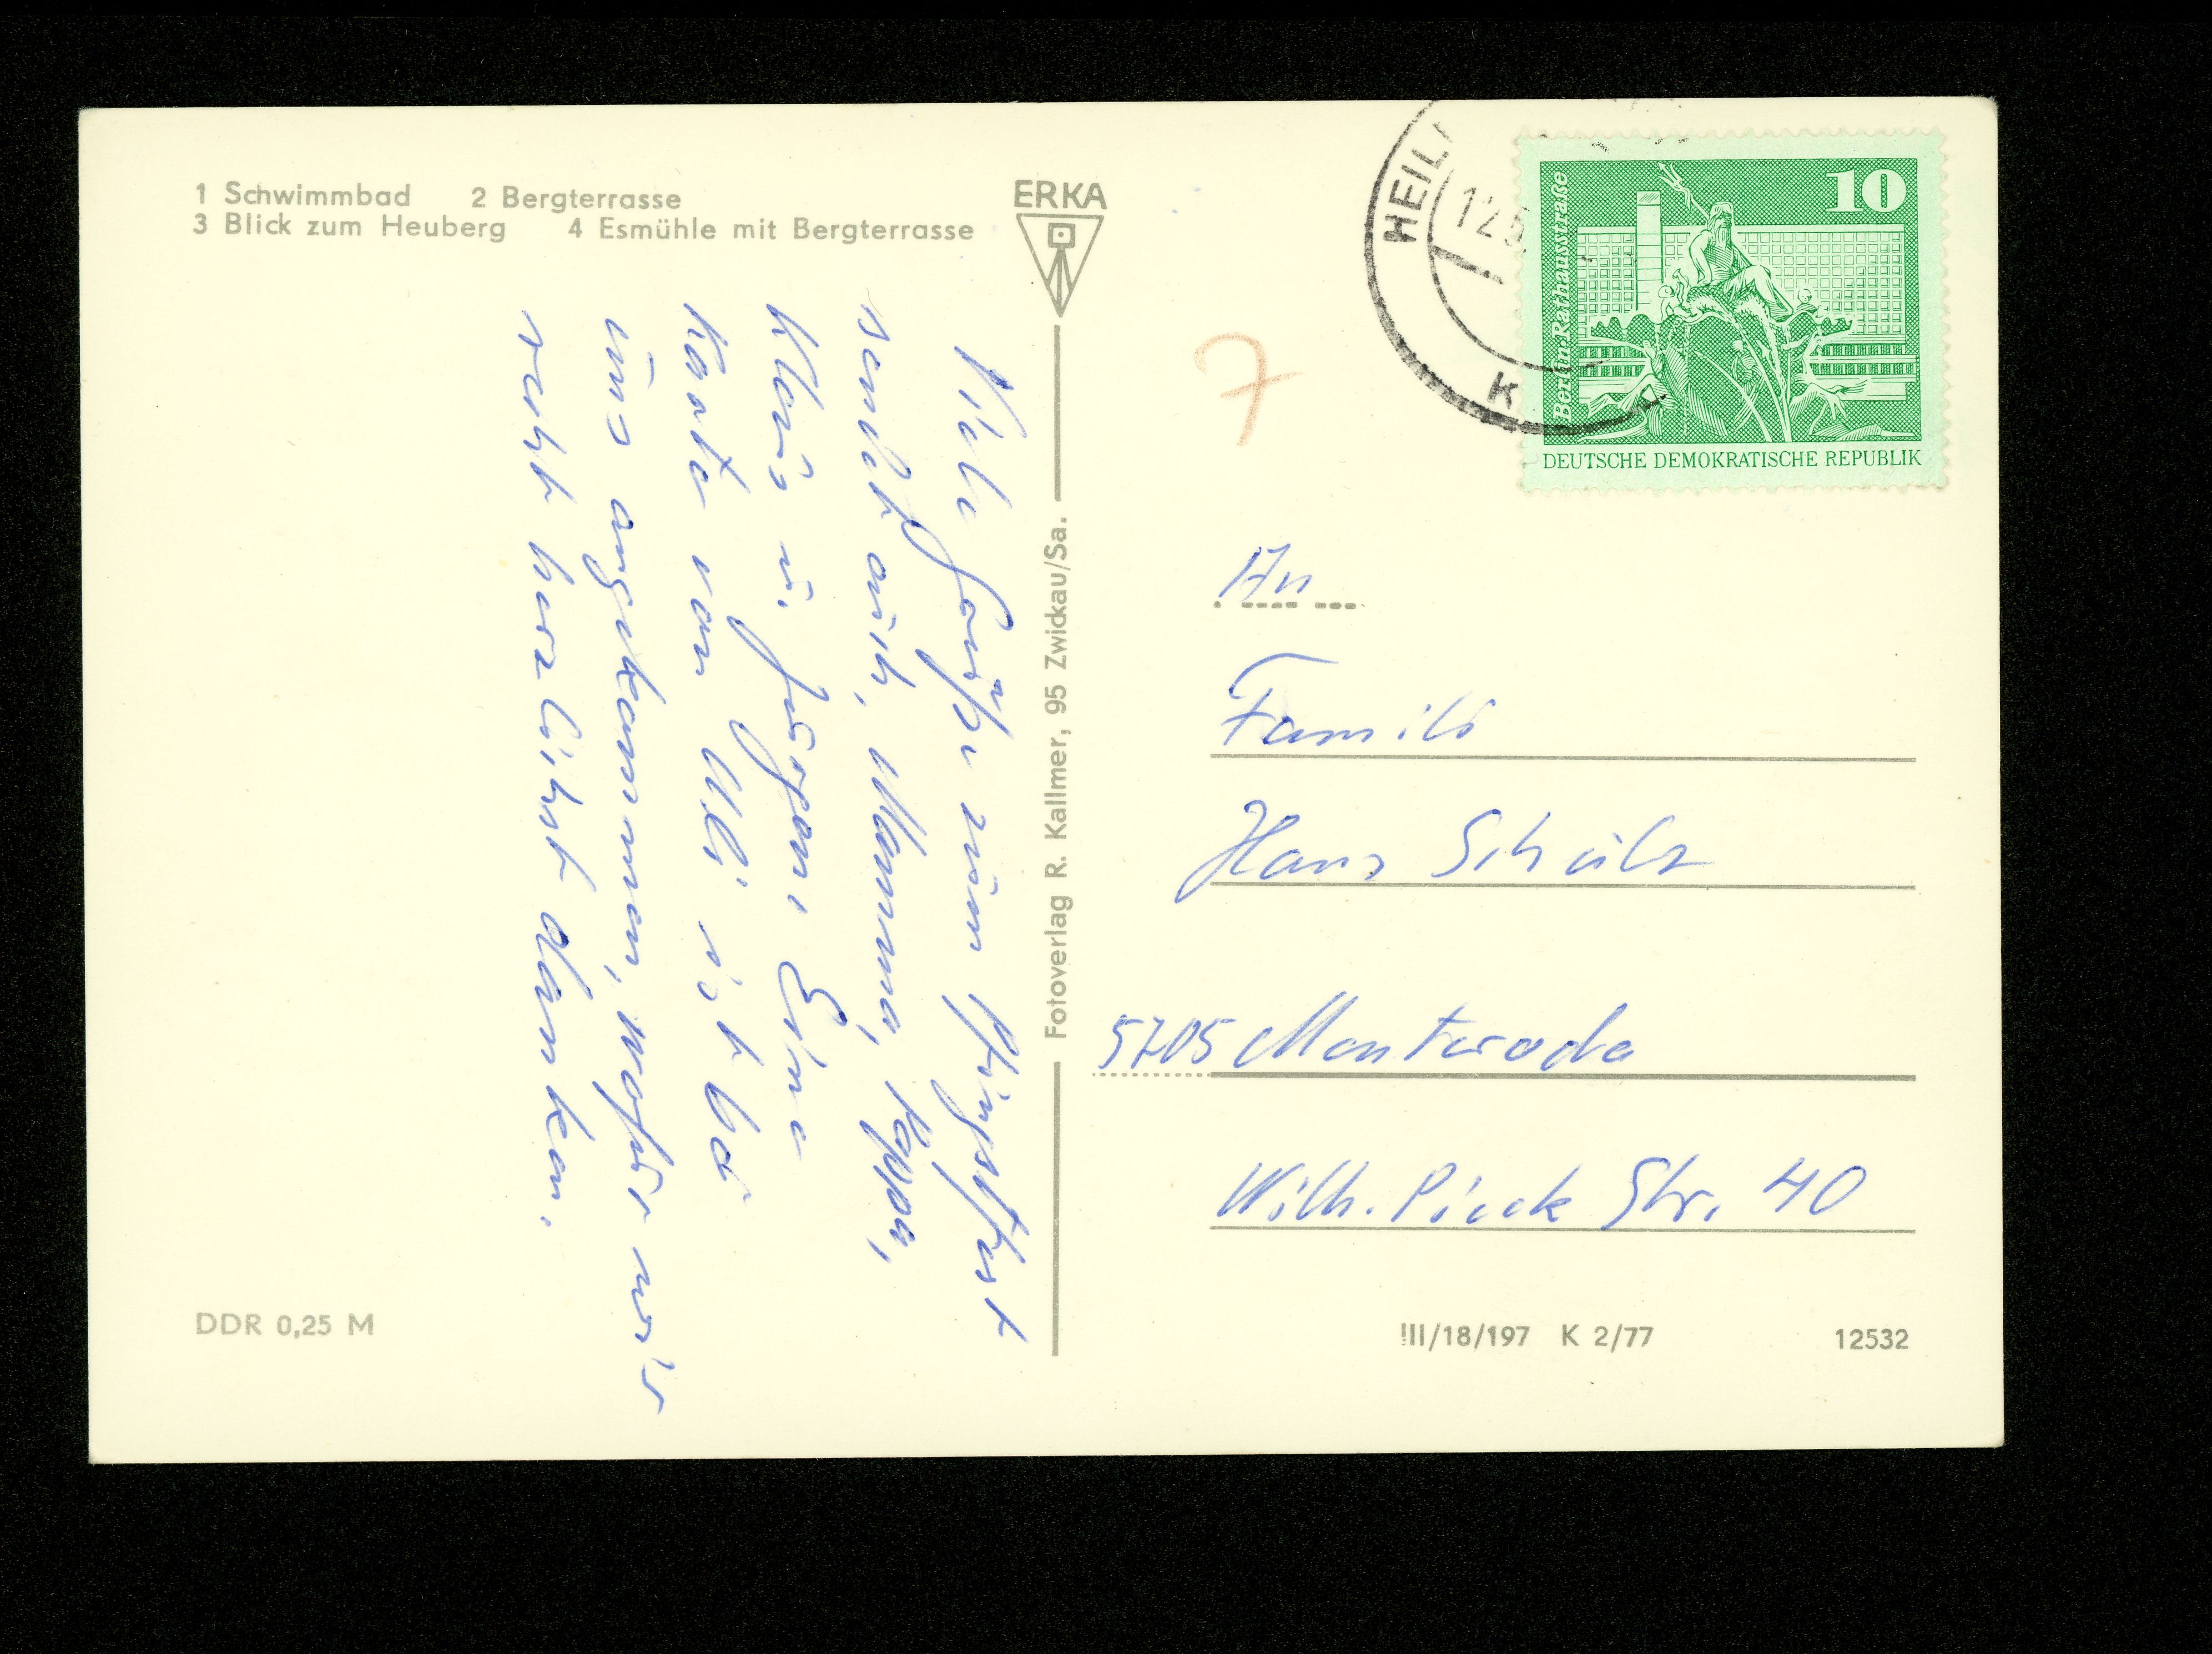 1 Schwimmbad 2 Bergterrasse
3 Blick zum Heuberg 4 Esmühle mit Bergterrasse
ERKA
Viele Grüße zum Pfingstfest
sendet auch, Mamma, Pappa,
Klaus u. Jürgen. Eine
Karte von Ulli ist bei
uns angekommen, wofür wir
recht herzlichst danken.
Fotoverlag R. Kallmer, 95 Zwickau/Sa.
DDR 0,25 M
HEIL
12.5
K
10
Berlin, Rathausstraße
DEUTSCHE DEMOKRATISCHE REPUBLIK
7
An
Familie
Hans Schulz
5705 Menteroda
Wilh. Pieck Str. 40
III/18/197 K 2/77
12532